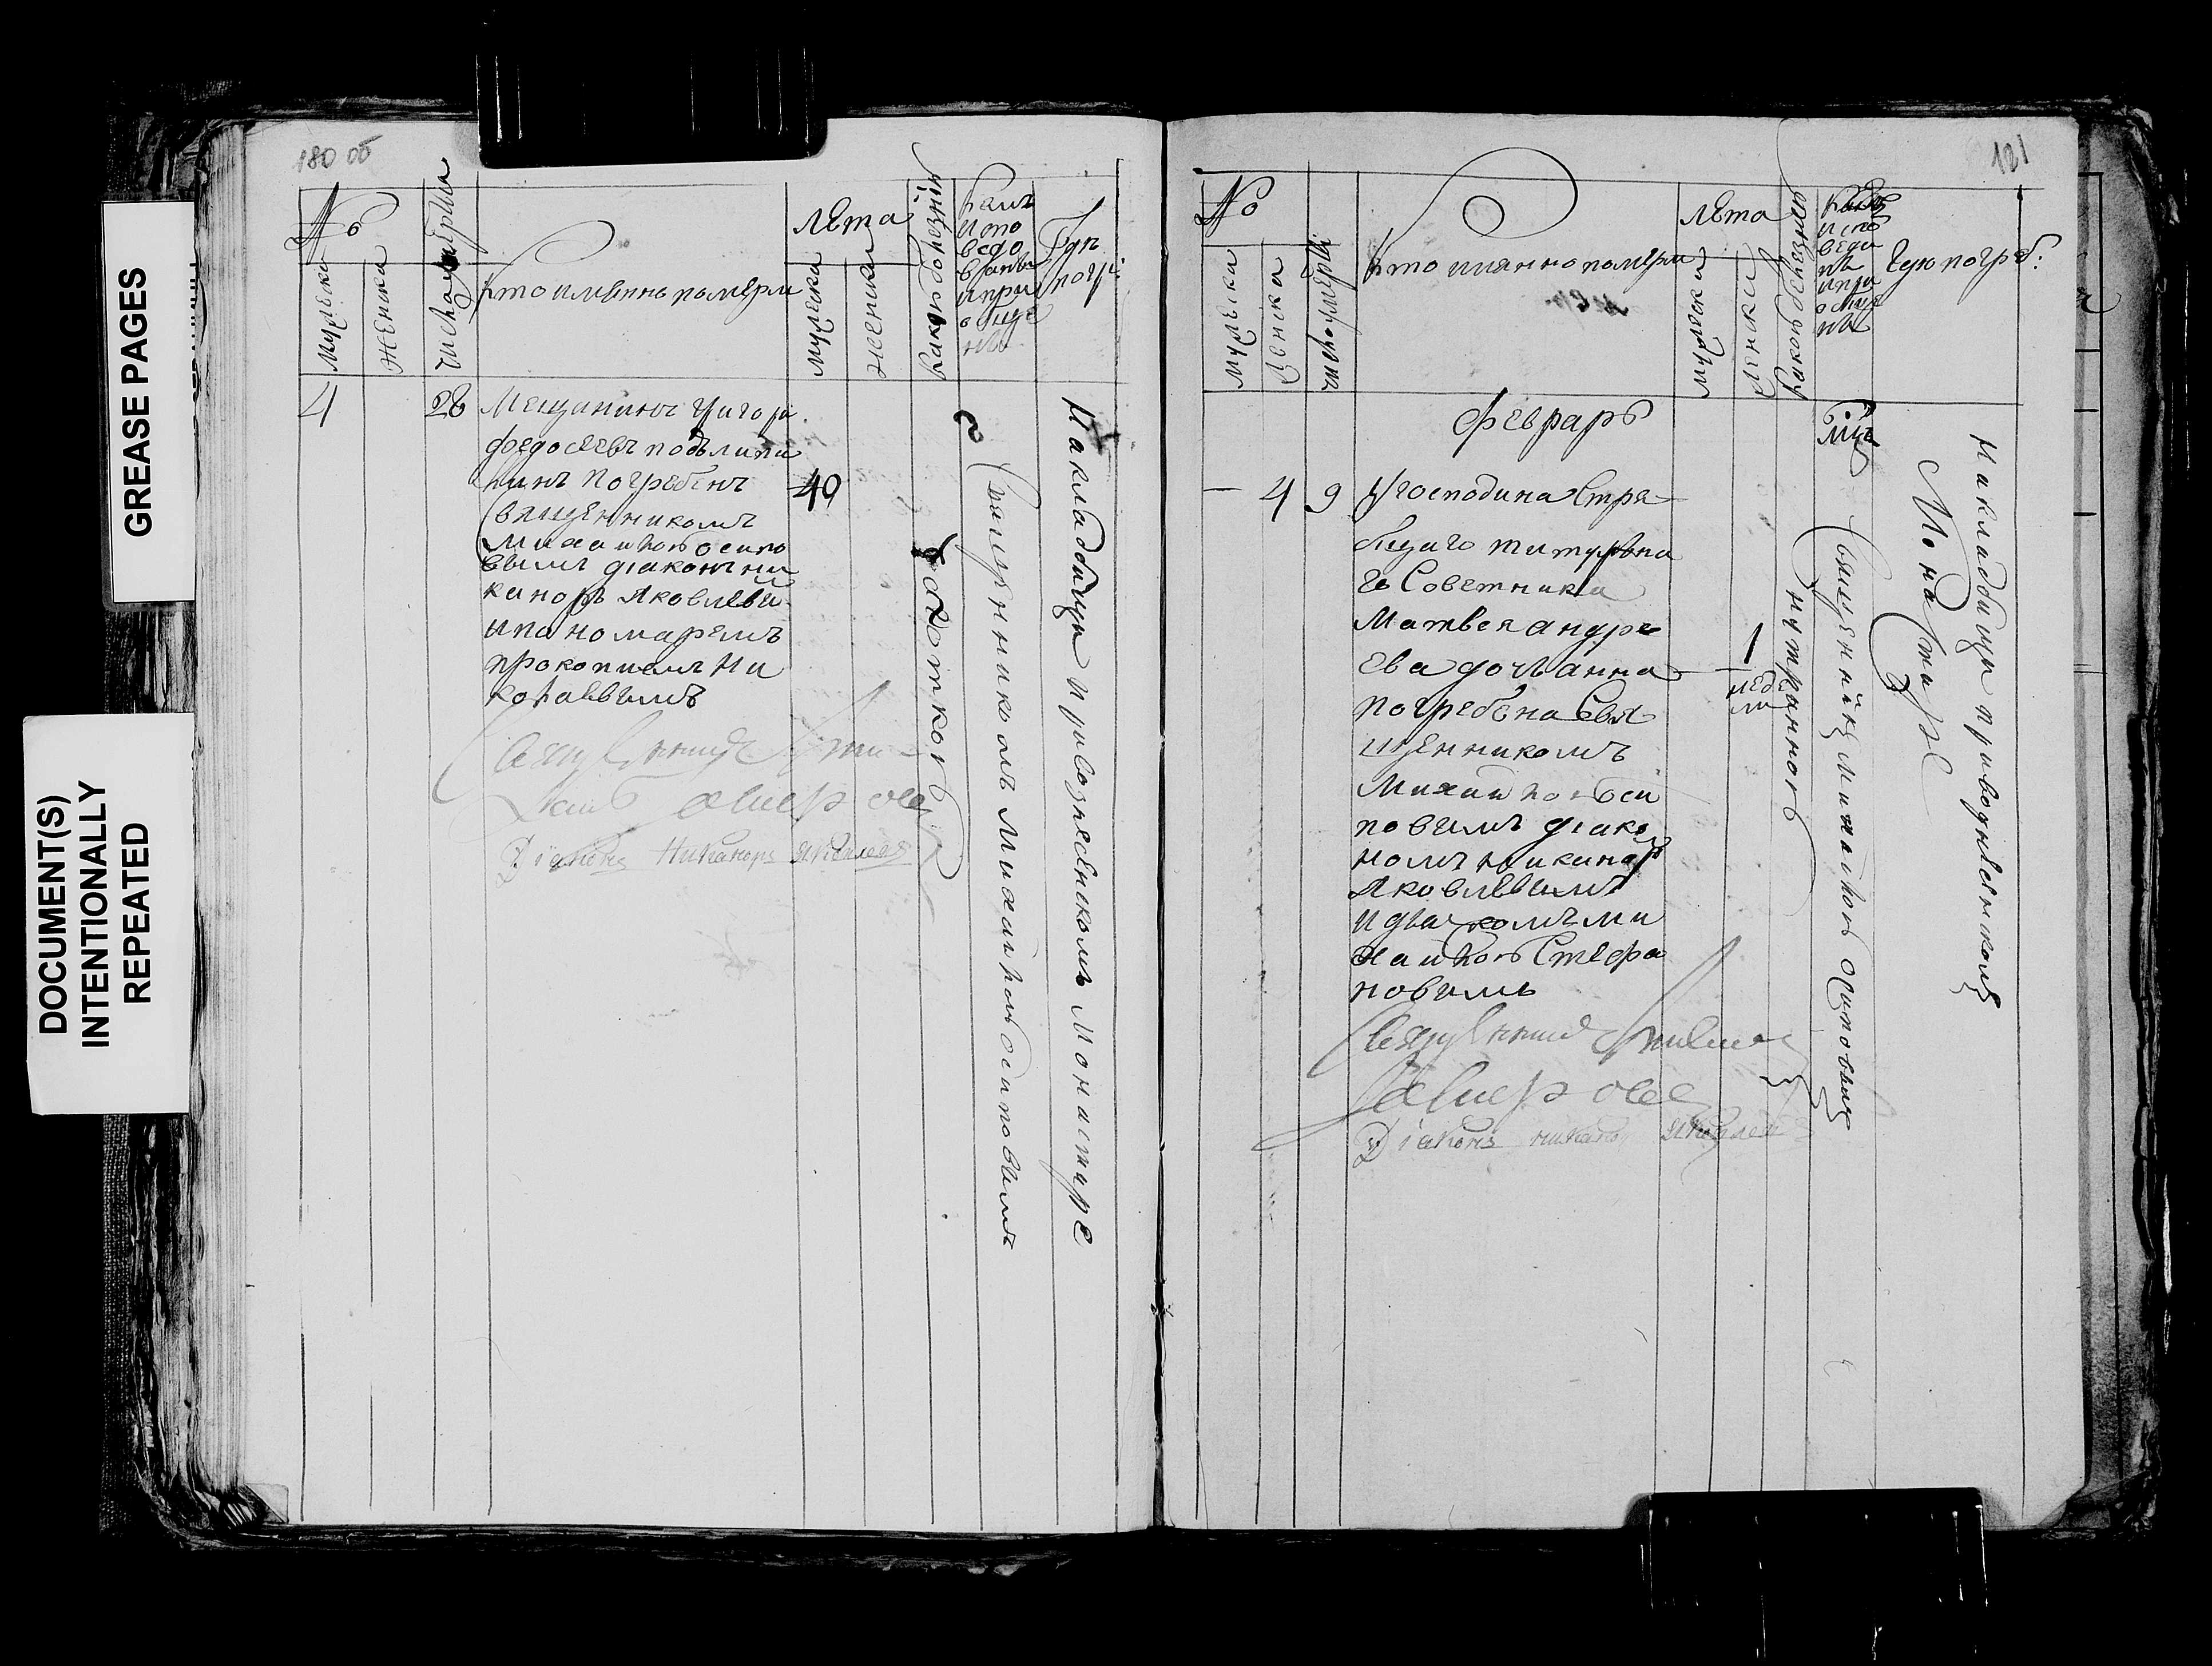 GREASE PAGES
DOCUMENT(S)
INTENTIONALLY
REPEATED
180 об
№
мужеска
женска
число умертвия
кто имянно померли
лета
мужеска
женска
какою болезнию
кемъ
испо
ведо
ваны
и при
обще
ны
Гдѣ
погр:
4
28
Мещанинъ григорей
федосеевъ подъ
погребенъ
40
священникомъ
михаиломъ осипо
вымъ диакономъ ни
каноръ яковлевы
и пономаремъ
прокопиемъ ни
колаевымъ
Чахоткою
Священникомъ Михаиломъ осиповымъ
На кладбищи при вознесенскомъ монастире
Священникъ
Діаконъ Никаноръ яковлевъ
121
№
мужеска
женска
кто имянно померли
лета
мужеска
женска
какою болезнию
кемъ
испо
веда
ны
и при
обще
ны
Где погреб:
февраль
— 4 9
У господина Стря
пчаго титулярна
го Советника
Матвея андре
ева дочь анна
погребена Свя
щенникомъ
Михаиломъ оси
повымъ диако
номъ никаноръ
яковлевымъ
и дьячкомъ ми
хаиломъ Стефа
новымъ
1
неде
ли
нутранною
Священникъ михаиломъ осиповымъ
На кладбищи при вознесенскомъ
Монастире
Священникъ
Діаконъ никанор яковлевъ